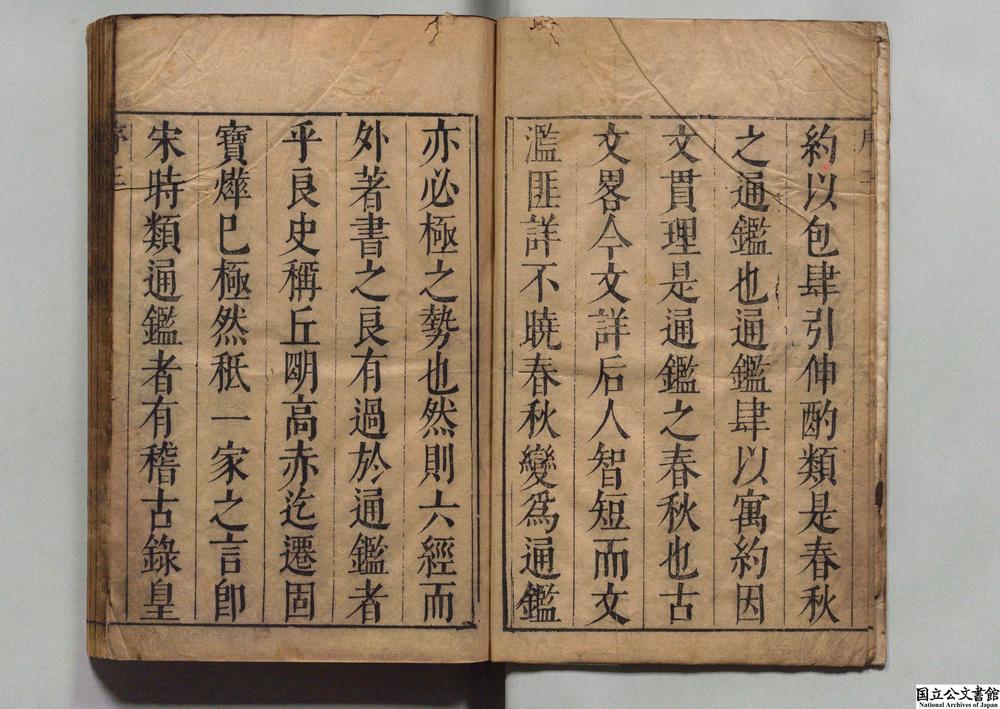 約以包肆引伸酌類是春秋
之通鑑也通鑑肆以寓約因
文貫理是通鑑之春秋也古
文畧今文詳后人智短而文
濫匪詳不曉春秋變爲通鑑
亦必極之勢也然則六經而
外著書之良有過於通鑑者
乎良史稱丘明高赤迄遷固
寶燁巳極然秖一家之言卽
宋時類通鑑者有稽古錄皇
序
国立公文書館
National Archives of Japan